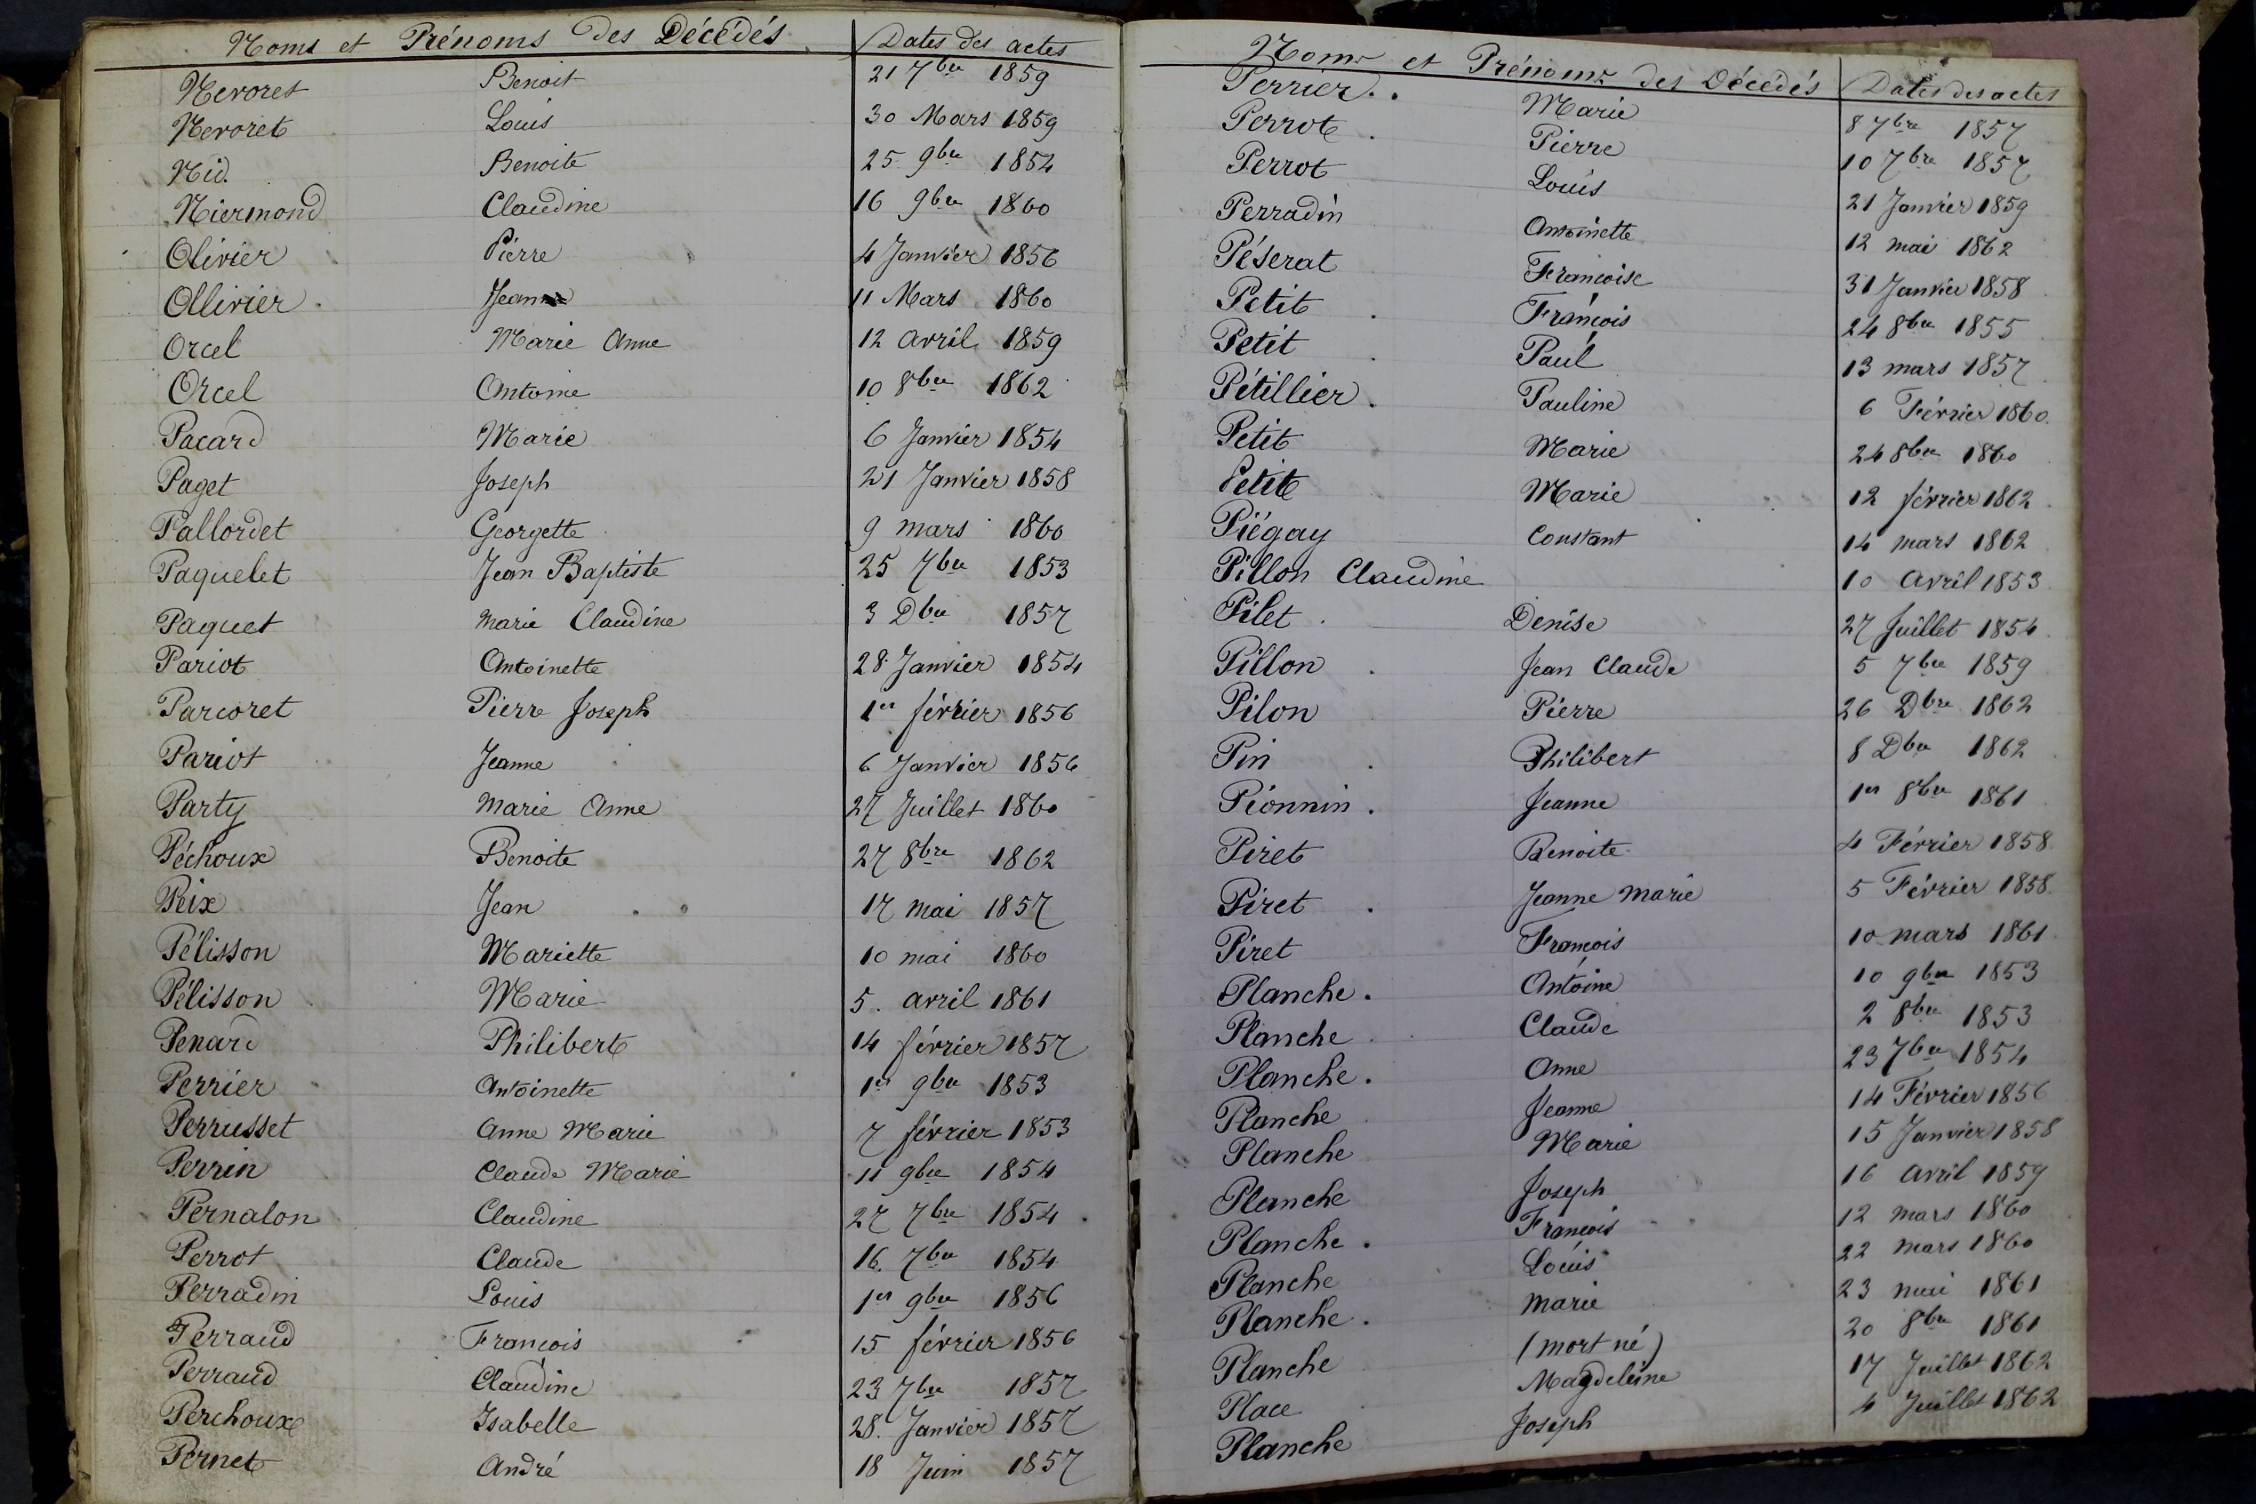 Noms et Prénoms des Décédés Dates des actes
Nevoret Benoit 21 7bre 1859
Nevoret Louis 30 Mars 1859
Nid. Benoite 25 9bre 1854
Niermond Claudine 16 9bre 1860
Olivier Pierre 4 Janvier 1856
Ollivier Jeanne 11 Mars 1860
Orcel Marie Anne 12 avril 1859
Orcel Antoine 10 8bre 1862
Pacard Marie 6 Janvier 1854
Paget Joseph 21 Janvier 1858
Pallordet Georgette 9 mars 1860
Paquelet Jean Baptiste 25 7bre 1853
Paquet Marie Claudine 3 Dbre 1857
Pariot Antoinette 28 Janvier 1854
Parcoret Pierre Joseph 1er février 1856
Pariot Jeanne 6 Janvier 1856
Party Marie Anne 27 Juillet 1860
Péchoux Benoite 27 8bre 1862
Peix Jean 17 mai 1857
Pélisson Mariette 10 mai 1860
Pélisson Marie 5. avril 1861
Penard Philibert 14 février 1857
Perrier Antoinette 1er 9bre 1853
Perrusset Anne Marie 7 février 1853
Perrin Claude Marie 11 9bre 1854
Pernalon Claudine 27 7bre 1854
Perrot Claude 16. 7bre 1854
Perradin Louis 1er 9bre 1856
Perraud François 15 février 1856
Perraud Claudine 23 7bre 1857
Perchoux Isabelle 28. Janvier 1857
Pernet André 18 Juin 1857
Noms et Prénoms des Décédés Dates des actes
Perrier Marie 8 7bre 1857
Perrot Pierre 10 7bre 1857
Perrot Louis 21 Janvier 1859
Perradin Antoinette 12 mai 1862
Péserat Françoise 31 Janvier 1858
Petit François 24 8bre 1855
Petit Paul 13 mars 1857
Pétillier Pauline 6 Février 1860
Petit Marie 24 8bre 1860
Petit Marie 12 février 1862
Piégay Constant 14 mars 1862
Pillon Claudine 10 avril 1853
Pilet Denise 27 Juillet 1854
Pillon Jean Claude 5 7bre 1859
Pilon Pierre 26 Dbre 1862
Pin Philibert 8 Dbre 1862
Pionnin Jeanne 1er 8bre 1861
Piret Benoite 4 Février 1858
Piret Jeanne Marie 5 Février 1858
Piret François 10 mars 1861
Planche. Antoine 10 9bre 1853
Planche Claude 2 8bre 1853
Planche. Anne 23 7bre 1854
Planche Jeanne 14 Février 1856
Planche Marie 15 Janvier 1858
Planche Joseph 16 avril 1859
Planche. François 12 mars 1860
Planche Louis 22 mars 1860
Planche. Marie 23 mai 1861
Planche (mort né) 20 8bre 1861
Place Magdeleine 17 Juillet 1862
Planche Joseph 4 Juillet 1862